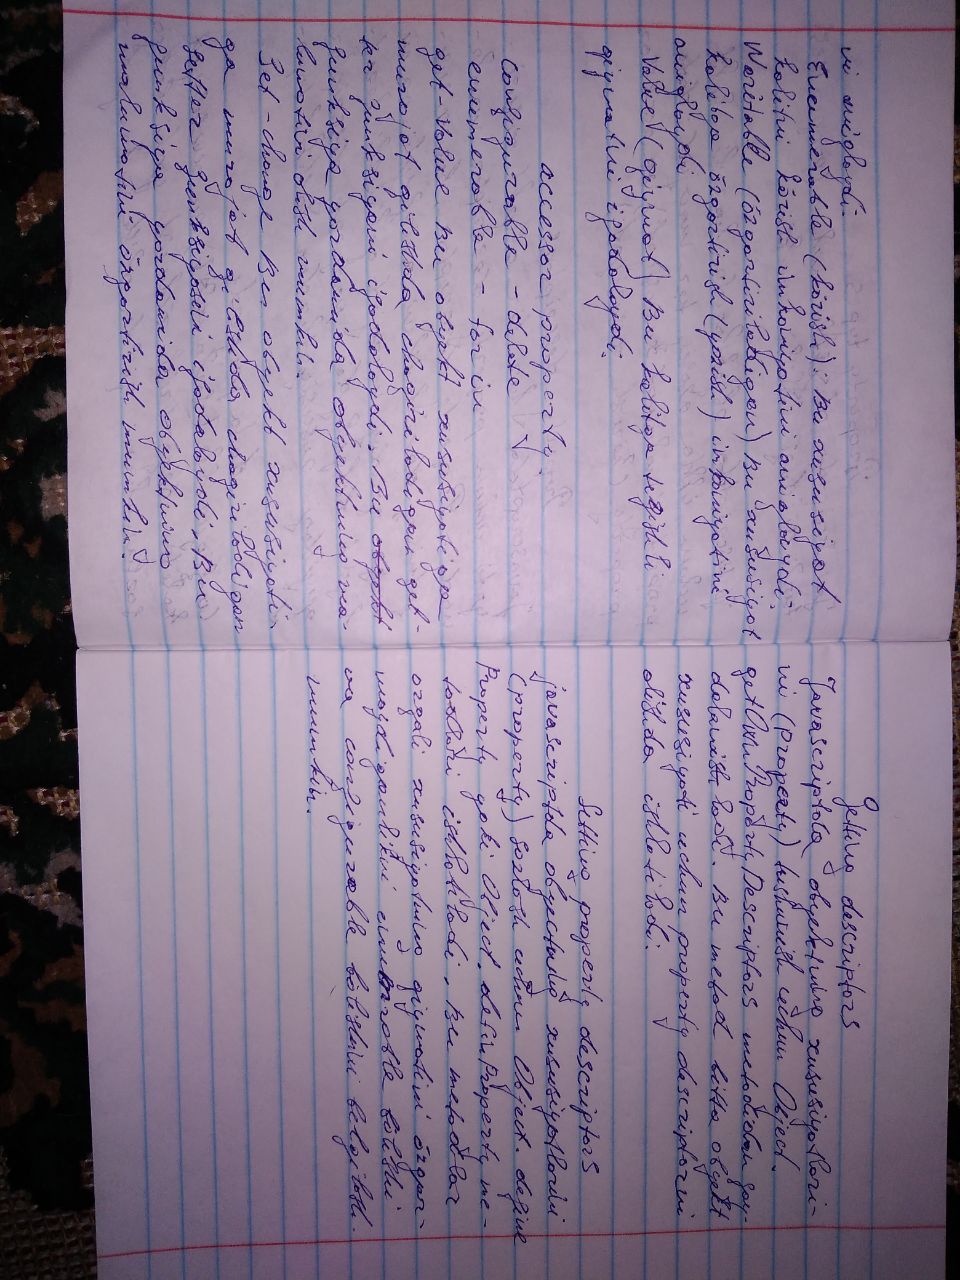 ni aniqlaydi.
Enumerable (ko'rish). Bu xususiyat
kalitni ko'rish imkoniyatini aniqlaydi.
Writable (o'zgartiriladigan) bu xususiyat
kalitga o'zgartirish (yozish) imkoniyatini
aniqlaydi.
Value (qiymat) bu kalitga tegishli
qiymatni ifodalaydi.
accessor property.
Configurable - delete
enumerable - for in
get-value Bu obyekt xususiyatiga
murojat qilishda chaqiriladigan get-
ter funksiyani ifodalaydi. Bu
funksiya yordamida obyektning ma-
lumotini olish mumkin.
Set - change Bu obyekt xususiyati-
ga murojat qilishda chaqiriladigan
setter funksiyasini ifodalaydi. Bu
funksiya yordamida obyektning
malumotini o'zgartirish mumkin.
Getting descriptors
Javascriptda obyektning xususiyatlari-
ni (property) tekshirish uchun Object.
getOwnPropertyDescriptors metodidan foy-
dalanish
xususiyati uchun property descriptorni
olishda ishlatiladi.
Setting property descriptors
javascriptda obyectning xususiyatlarini
(property) sozlash uchun Object.define
Property yoki Object.definProperty me-
todlari ishlatiladi. Bu metodlar
orqali xususiyatning qiymatini o'zgar-
enumerable
va configurable bo'lishini belgilash
mumkin.